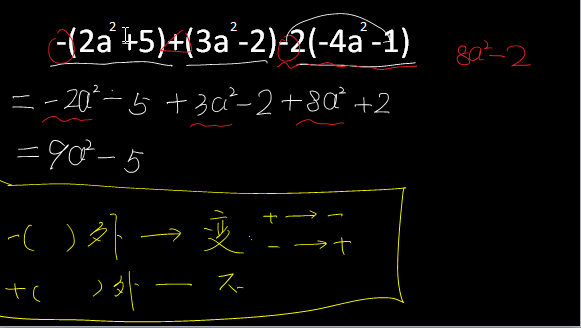 -(2a²+5)+(3a²-2)-2(-4a²-1)
8a²-2
= -2a²-5+3a²-2+8a²+2
= 9a²-5
-( )外 → 变. + → -
- → +
+( )外 — 不